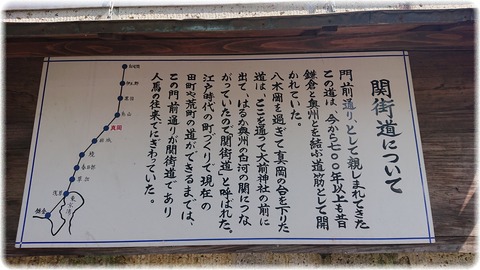 関街道について
門前通り、として親しまれてきた
この道は、今から七〇〇年以上も昔
鎌倉と奥州とを結ぶ道筋として開
かれていた。
八木岡を過ぎて真岡の台を下りた
道は、ここを通って大前神社の前に
出て、はるか奥州の白河の関につな
がっていたので「関街道」と呼ばれた。
江戸時代の町づくりで現在の
田町や荒町の道ができるまでは、
この門前通りが関街道であり
人馬の往来でにぎわっていた。
烏山
真岡
結城
鎌倉